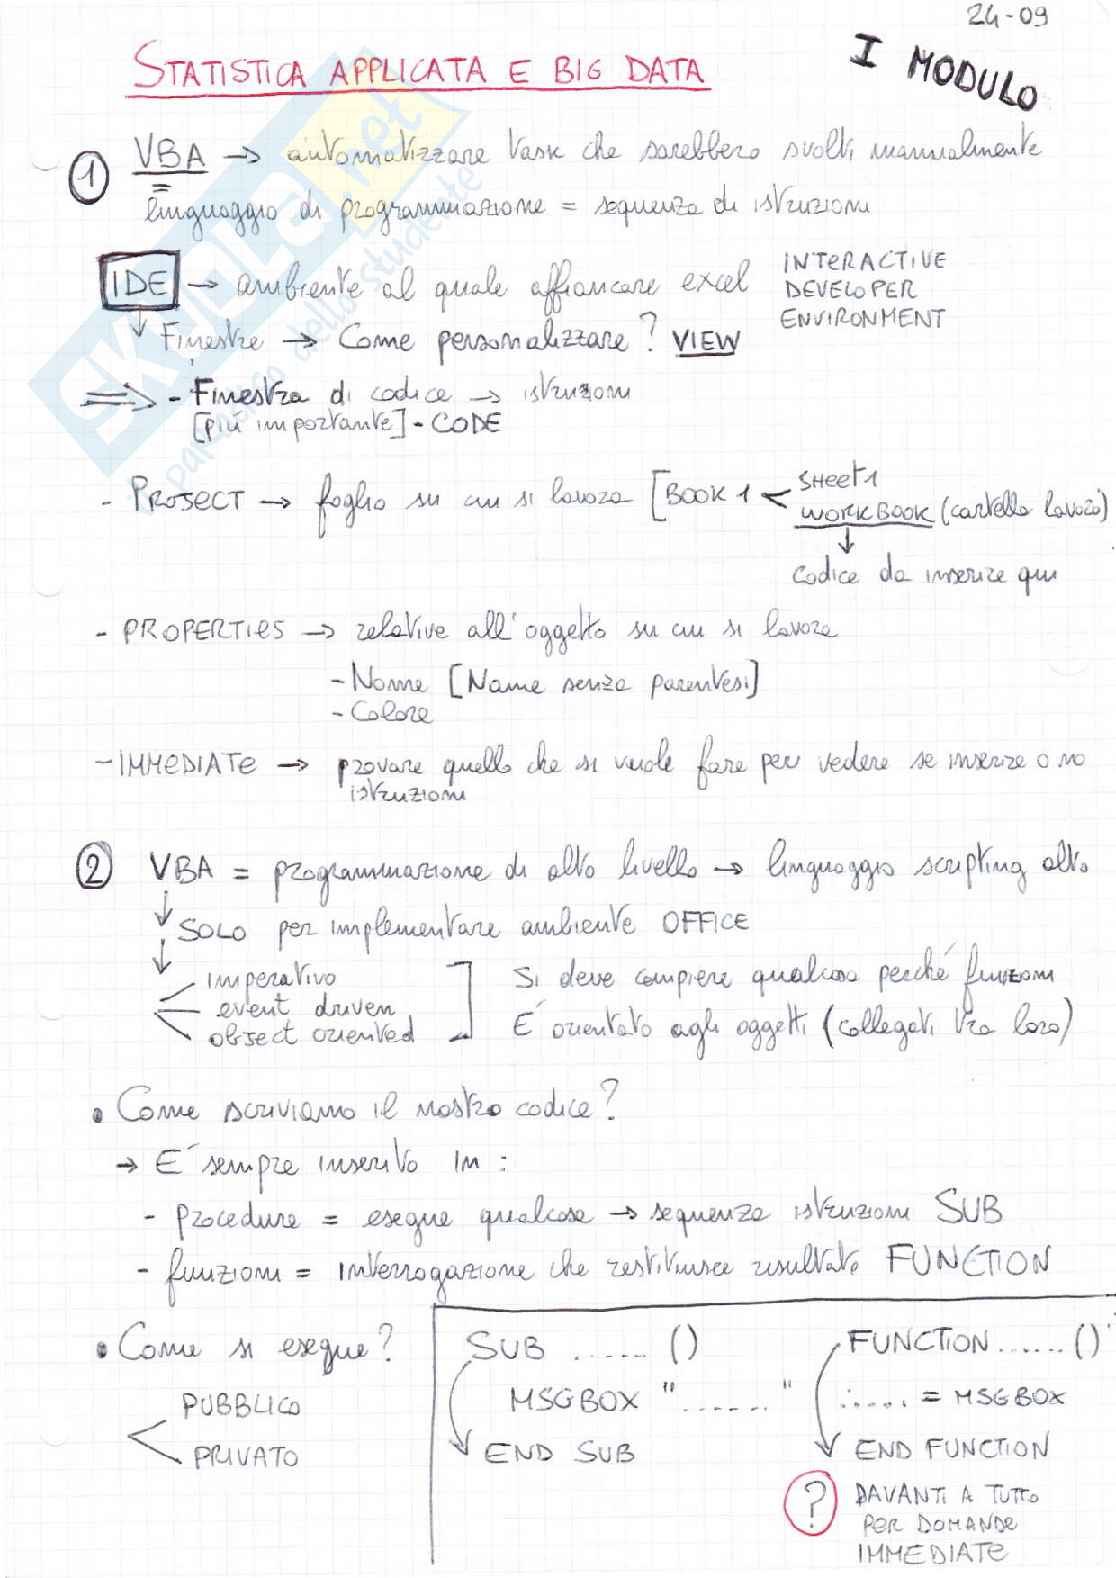 24-09
STATISTICA APPLICATA E BIG DATA
I MODULO
① VBA → automatizzare task che sarebbero svolti manualmente
linguaggio di programmazione = sequenza di istruzioni
IDE → ambiente al quale affiancare excel
INTERACTIVE
DEVELOPER
ENVIRONMENT
↓ Finestre → Come personalizzare? VIEW
⇒ - Finestra di codice → istruzioni
[più importante] - CODE
- PROJECT → foglio su cui si lavora [BOOK 1 < SHEET1
WORKBOOK (cartella lavoro)
↓
codice da inserire qui
- PROPERTIES → relative all'oggetto su cui si lavora
- Nome [Name senza parentesi]
- Colore
- IMMEDIATE → provare quello che si vuole fare per vedere se inserire o no
istruzioni
② VBA = programmazione di alto livello → linguaggio scripting alto
↓ SOLO per implementare ambiente OFFICE
↓
imperativo
event driven
object oriented
Si deve compiere qualcosa perché funzioni
E' orientato agli oggetti (collegati tra loro)
• Come scriviamo il nostro codice?
→ E' sempre inserito in :
- procedure = esegue qualcosa → sequenza istruzioni SUB
- funzioni = interrogazione che restituisce risultato FUNCTION
• Come si esegue?
PUBBLICO
PRIVATO
SUB ...... ()
MSGBOX "......"
END SUB
FUNCTION ...... ()
...... = MSGBOX
END FUNCTION
? DAVANTI A TUTTO
PER DOMANDE
IMMEDIATE
SKUOLA.net
paradiso dello studente